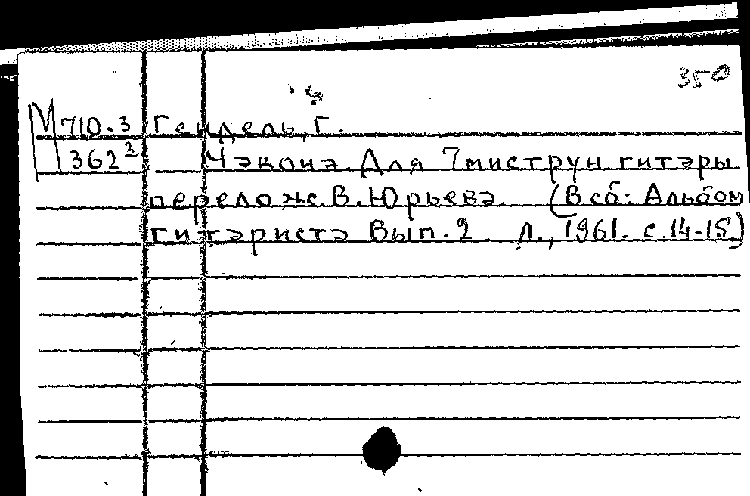 350
М 710.3 Гендель, Г.
362² Чакона. Для 7миструн гитары
перелож. В. Юрьева (В сб: Альбом
гитариста Вып. 2 Л., 1961. с. 14-15)